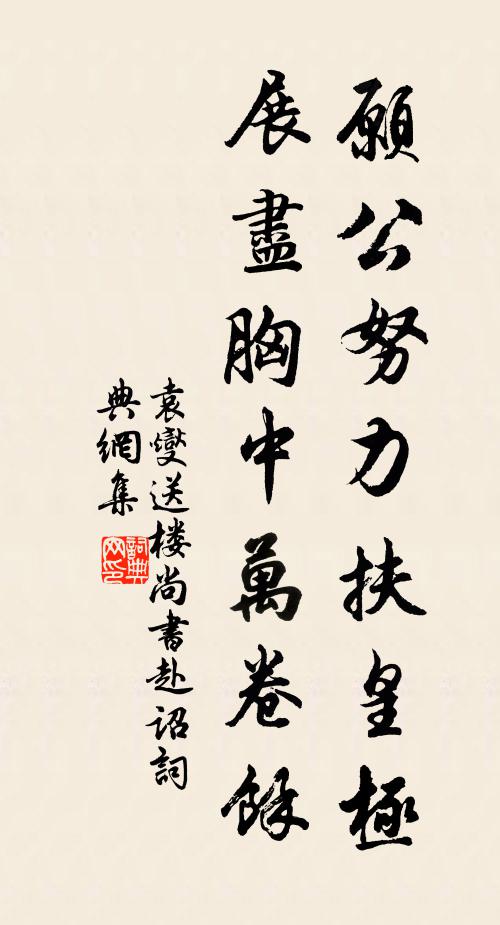 願公努力扶皇極
展盡胸中萬卷餘
袁燮送楼尚書赴詔詞
典網集
詞典网印